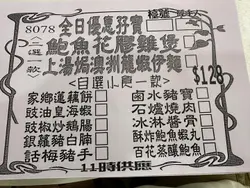 8078 全日優惠孖寶
二選一款
鮑魚花膠雞煲
上湯焗澳洲龍蝦伊麵
自選小食一款
$128
家鄉蓮藕餅
豉油皇海蝦
豉椒炒鵝腸
銀蘿豬白腩
話梅豬手
鹵水豬寶
石爐燒肉
冰淋醬骨
酥炸鮑魚蝦丸
百花蒸釀鮑魚
11時供應